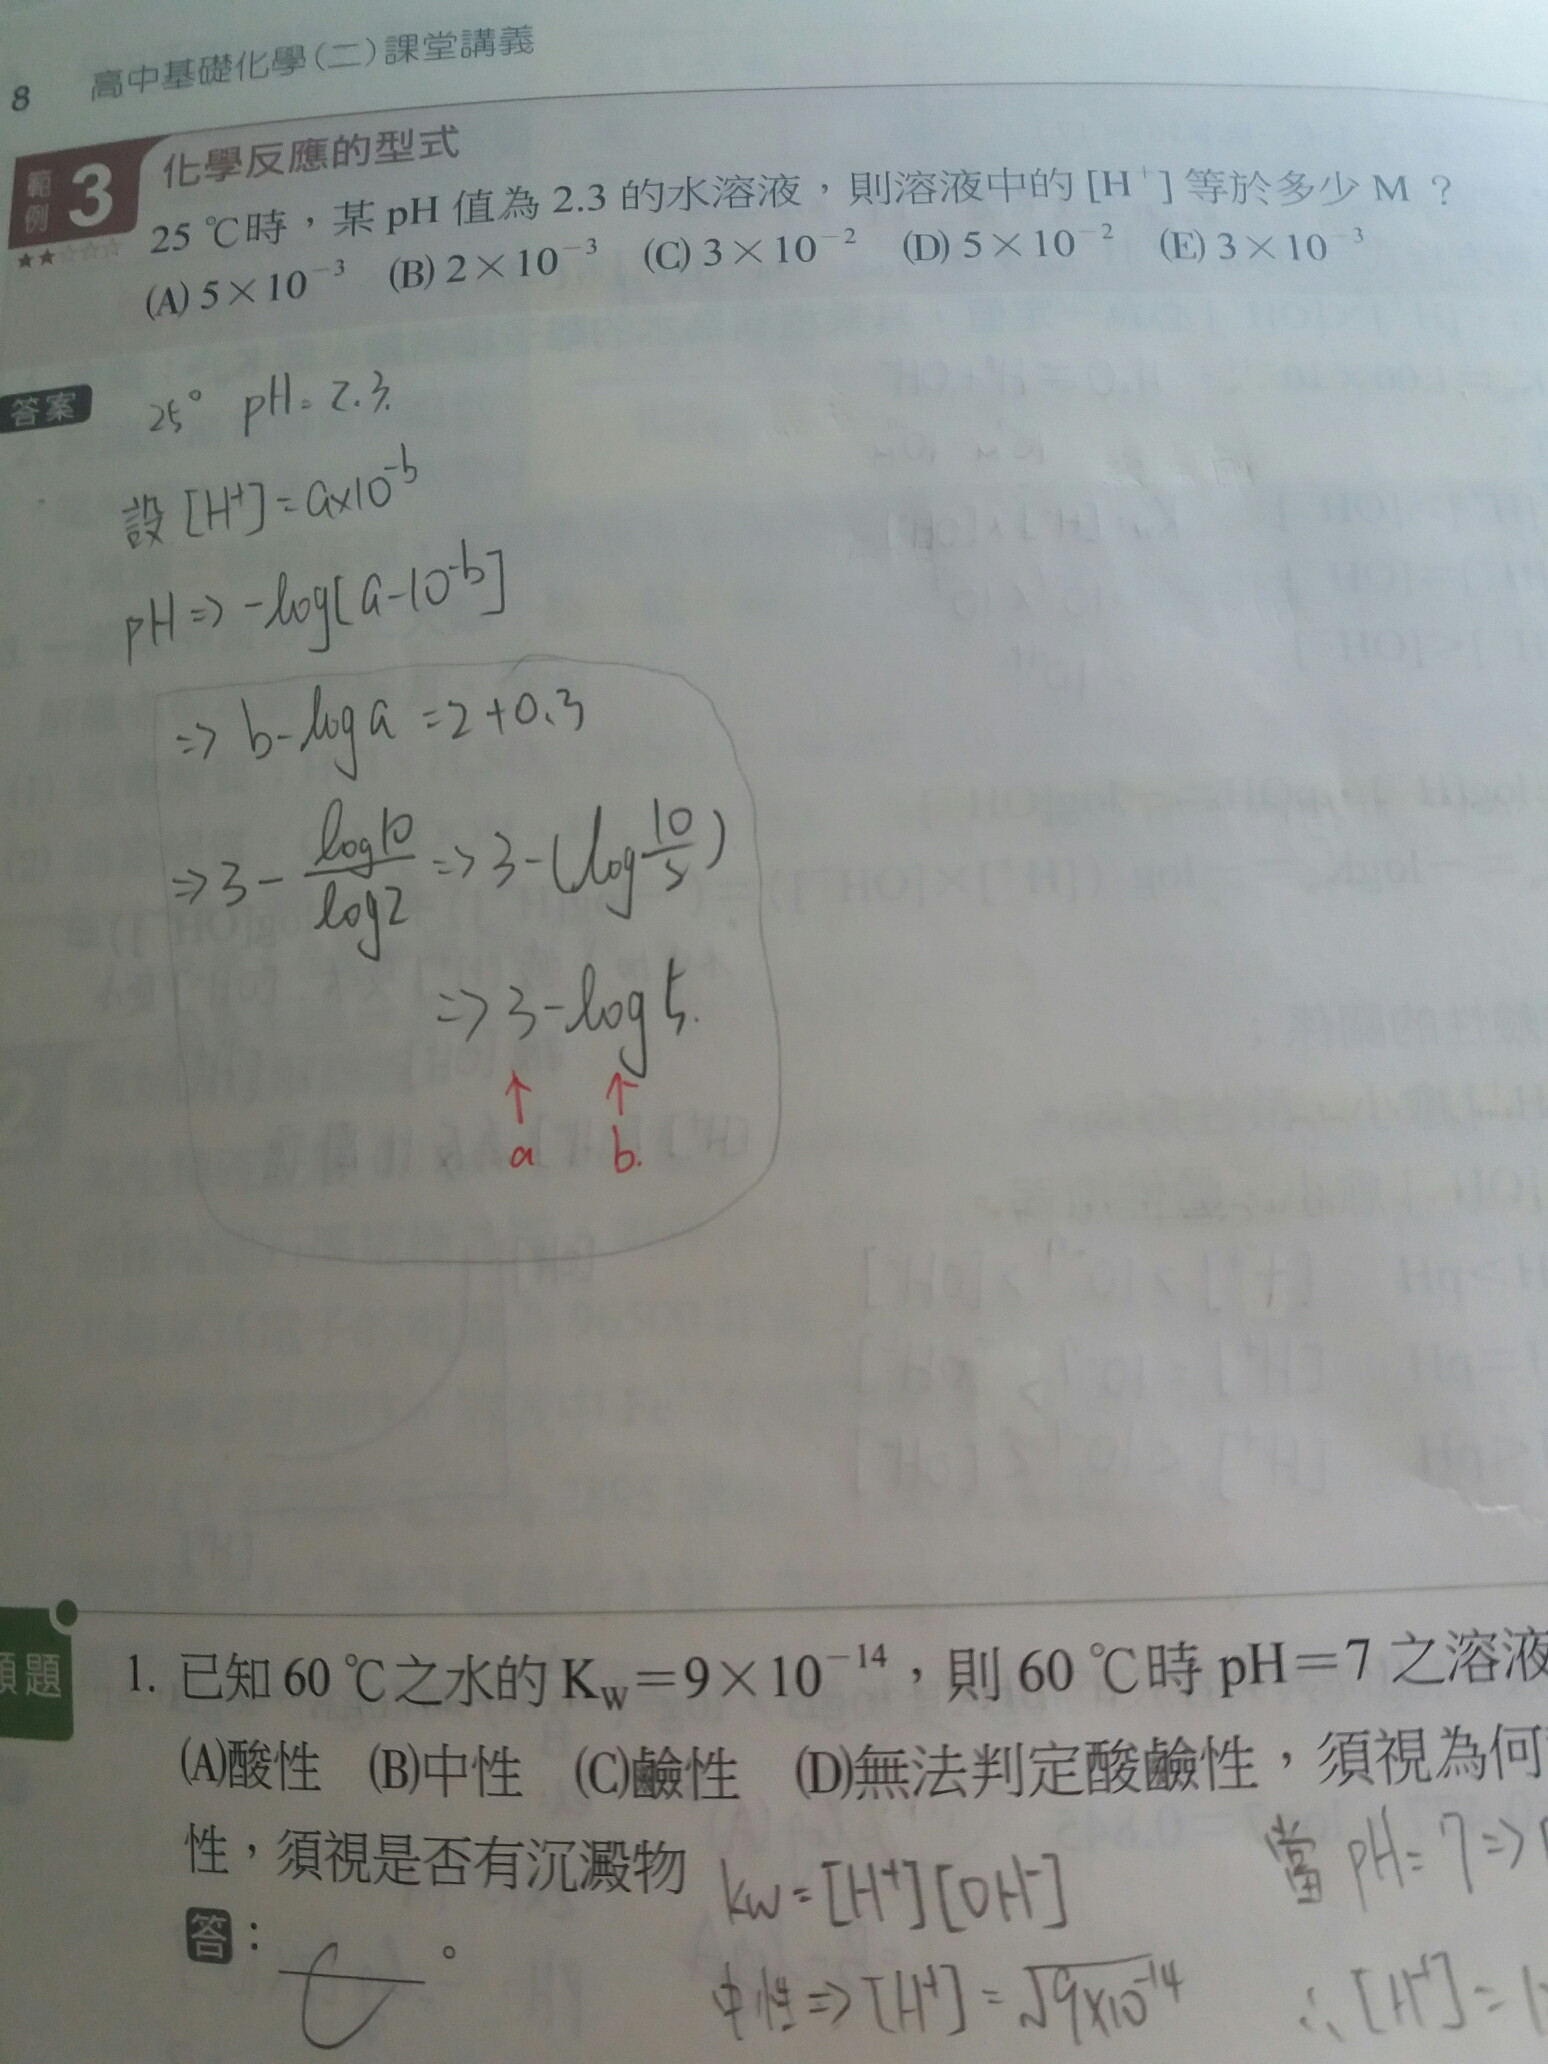 8 高中基礎化學(二)課堂講義
範例 3 化學反應的型式
25 ℃時，某 pH 值為 2.3 的水溶液，則溶液中的 [H⁺] 等於多少 M ?
(A) 5×10⁻³ (B) 2×10⁻³ (C) 3×10⁻² (D) 5×10⁻² (E) 3×10⁻³
答案
25° pH = 2.3.
設 [H⁺] = a×10⁻ᵇ
pH => -log[a-10⁻ᵇ]
=> b-log a = 2+0.3
=> 3 - log10/log2 => 3-(log 10/5)
=> 3-log 5.
↑ ↑
a b.
題 1. 已知 60 ℃之水的 Kw＝9×10⁻¹⁴，則 60 ℃時 pH＝7 之溶液
(A)酸性 (B)中性 (C)鹼性 (D)無法判定酸鹼性，須視為何
性，須視是否有沉澱物
kw = [H⁺][OH⁻]
當 pH = 7 =>
答： C 。
中性 => [H⁺] = √9×10⁻¹⁴
∴ [H⁺] = 1